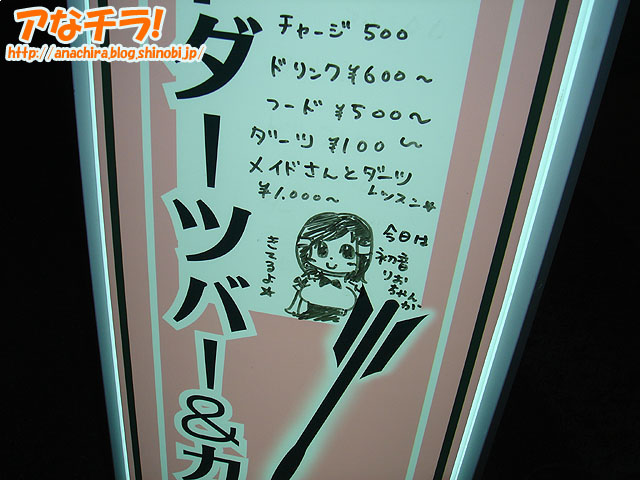 アなチラ!
http://anachira.blog.shinobi.jp/
ダーツバー&カ
チャージ 500
ドリンク ¥600〜
フード ¥500〜
ダーツ ¥100〜
メイドさんとダーツ
レッスン☆
¥1,000〜
今日は
初音
りおちゃんが
きてるよ☆